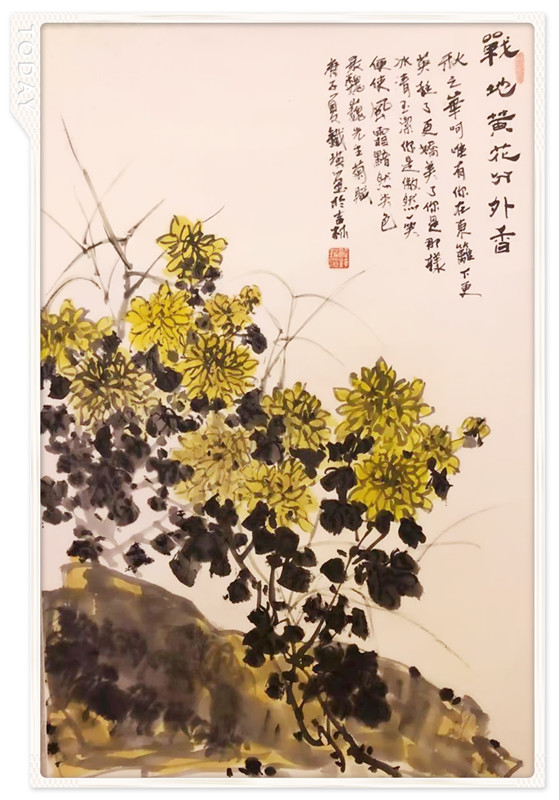 戰地黄花分外香
秋之華呵唯有你在東籬下更
英挺了更嬌美了你是那樣
冰清玉潔你是傲然一笑
便使風霜黯然失色
录魏巍先生菊賦
庚子夏鐵画於吉林
TODAY